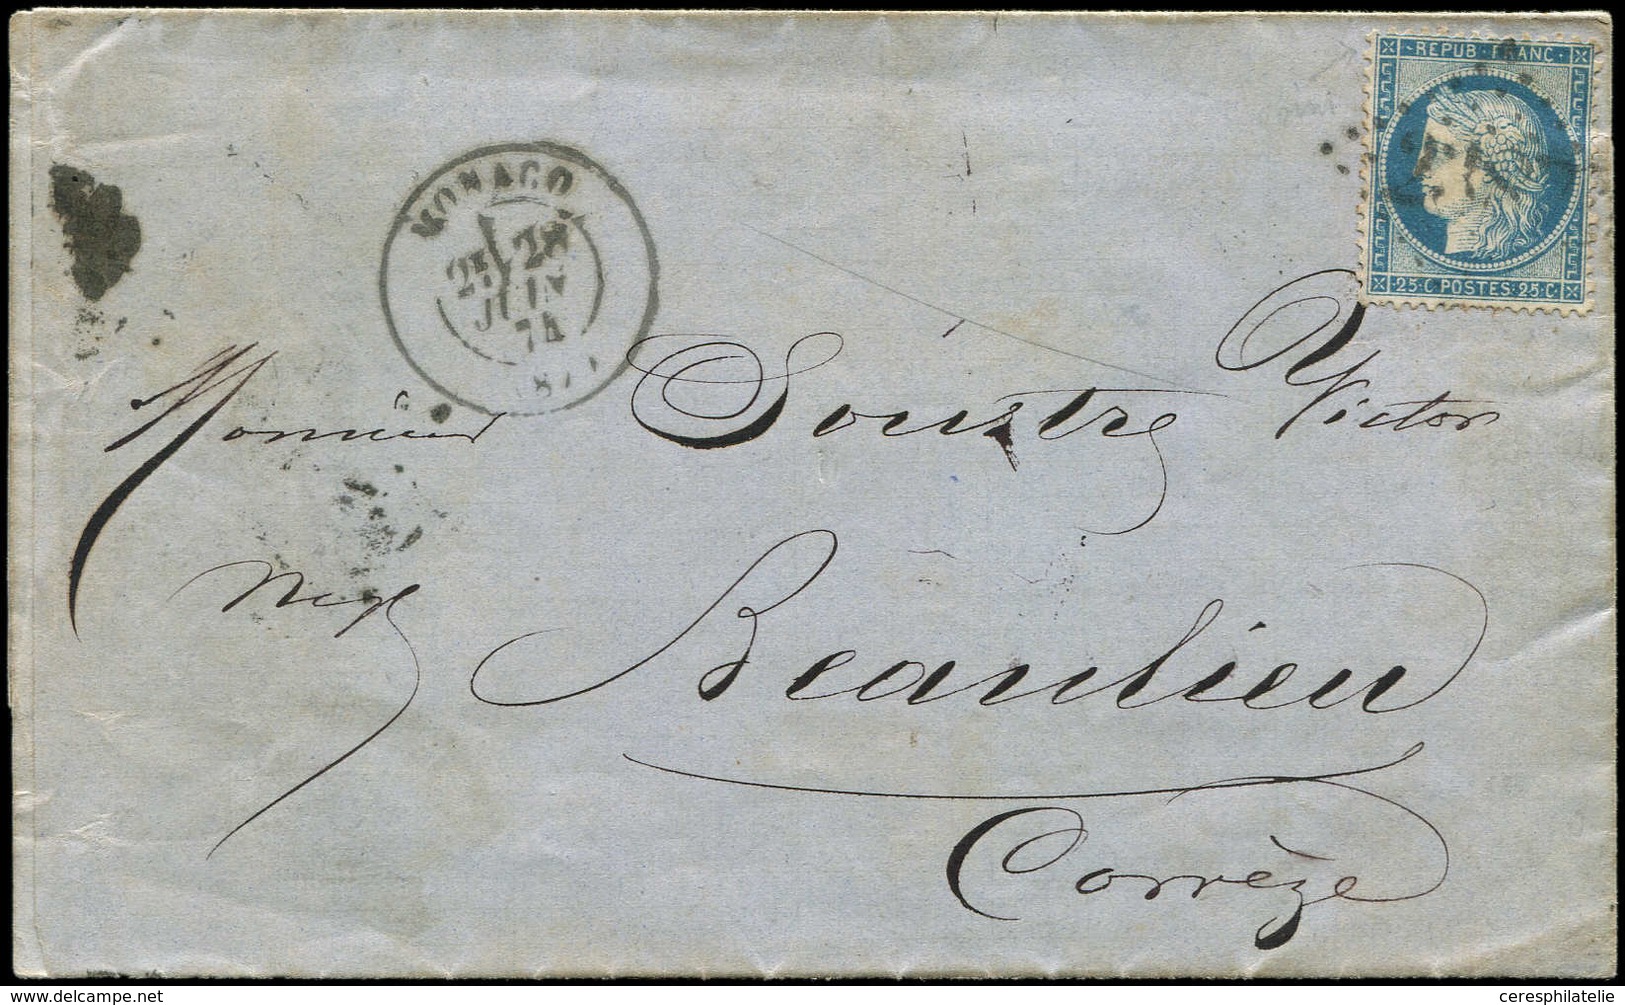 REPUB · FRANC ·
25 · C POSTES · 25 · C
MONACO
2E
28
JUIN
74
Monsieur Soustre Victor
Beaulieu
Corrèze
ceresphilatelie